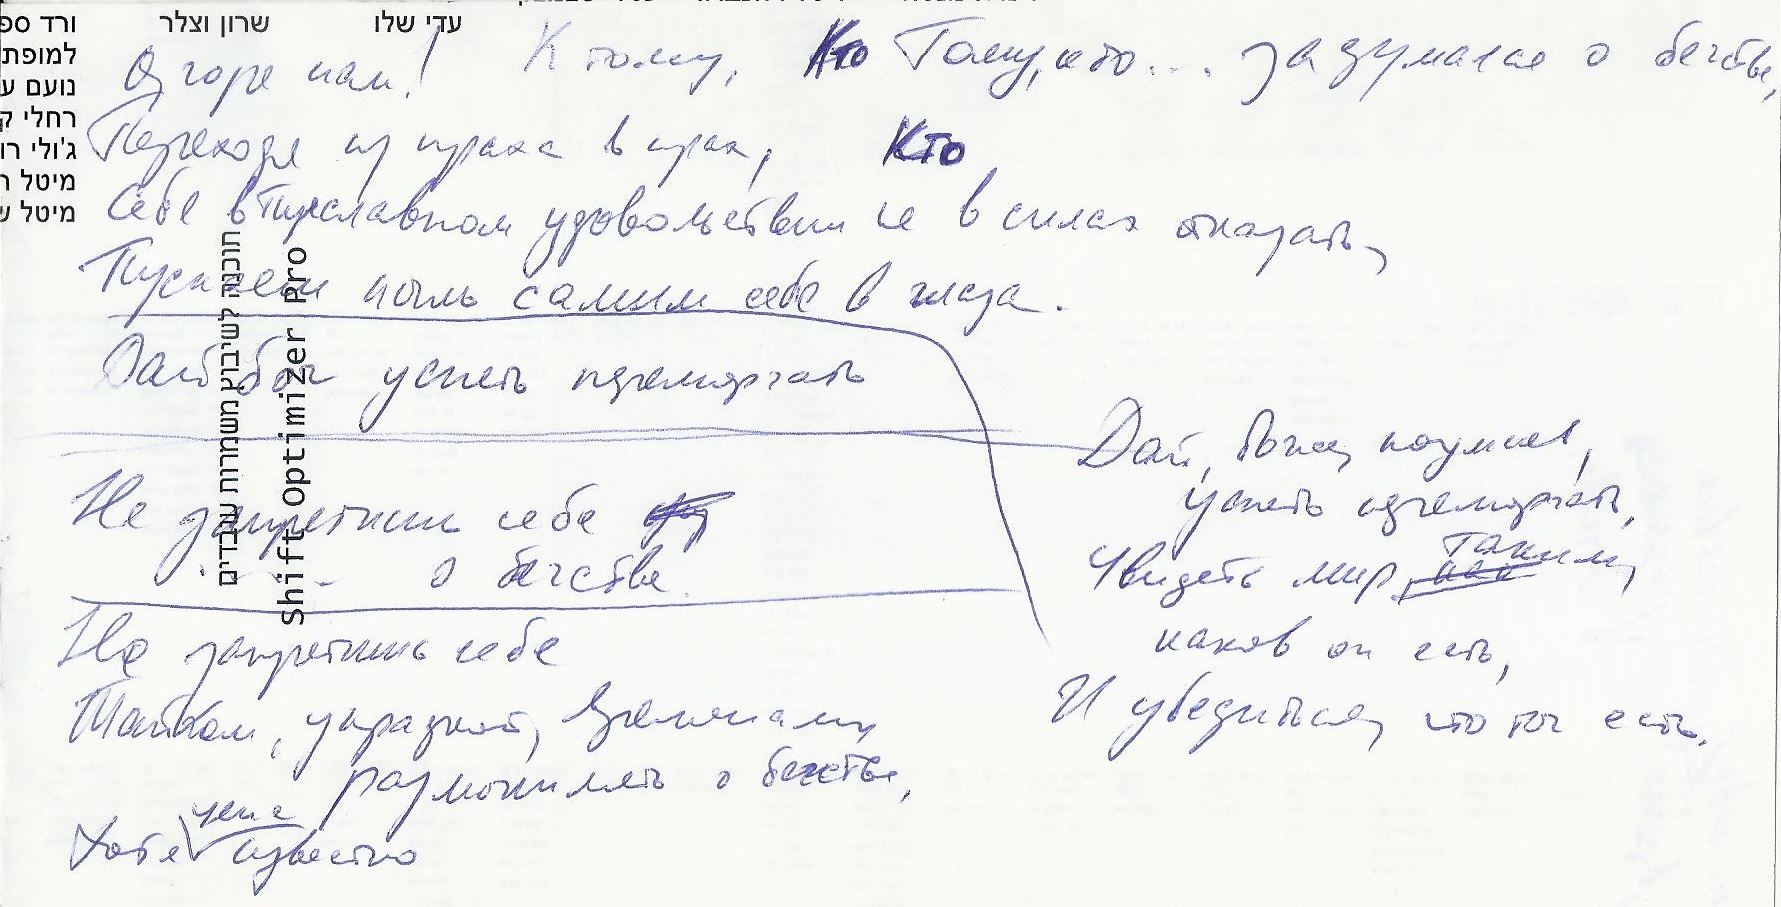 ורד ספ
שרון וצלר
עדי שלו
למופת
נועם ע
רחלי ק
ג'ולי רו
מיטל ר
מיטל ש
תוכנה לשיבוץ משמרות עובדים
Shift Optimizer Pro
О, горе нам! К тому, Кто Тому, кто... задумался о бегстве,
Переходя из праха в прах, Кто
Себе в тщеславном удовольствии не в силах отказать,
Пускаем пыль самим себе в глаза.
Дай бог успеть переморгать
Не запретишь себе
о бегстве.
Не запретишь себе
Тайком, украдкой, временами
размышлять о бегстве,
Хотя уже известно
Дай, Боже, поумнев,
успеть переморгать,
Увидеть мир таким,
каков он есть,
И убедиться, что ты есть.